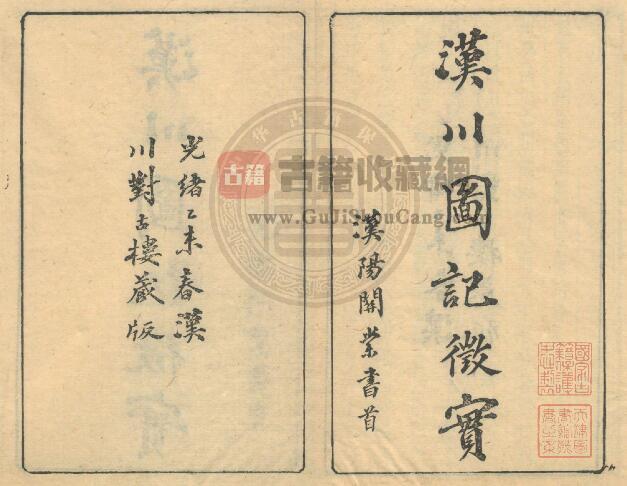 漢川圖記徵實
漢陽關棠書首
光緒乙未春漢
川對古樓藏版
古籍
古籍收藏網
www.GuJiShouCang.com